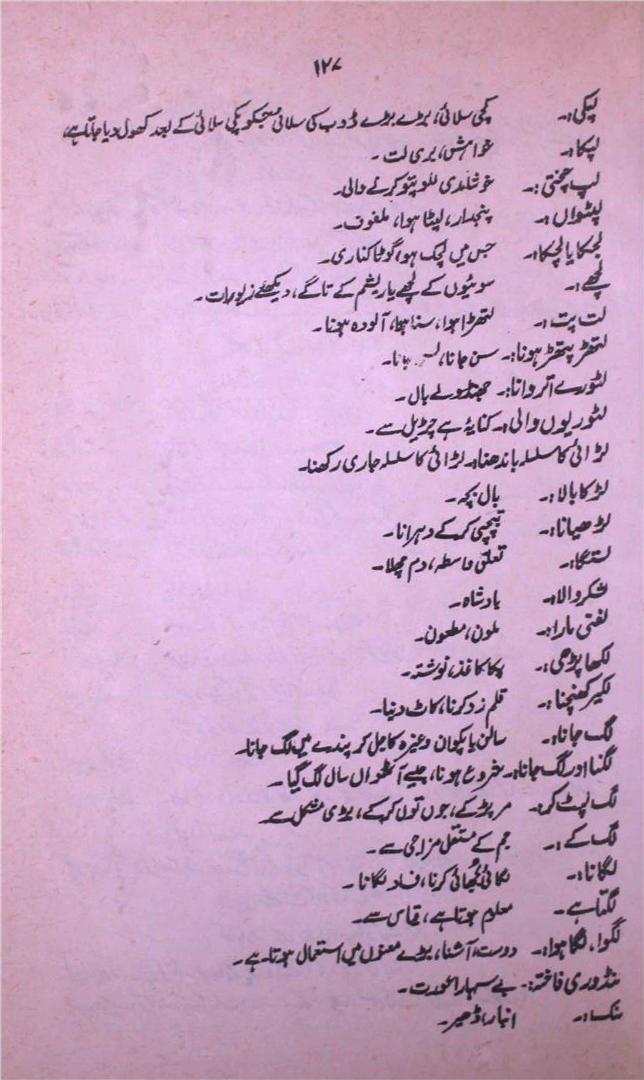 ۱۲۷
لپکی:۔ کچی سلائی، بڑے بڑے ڈوب کی سلائی جسکو پکی سلائی کے بعد کھول دیا جاتا ہے،
لپکا:۔ خواہش، بری لت۔
لپ چخنی:۔ خوشامدی للو پتو کرنے والی۔
لپٹواں:۔ پیچدار، لپٹا ہوا، ملفوف۔
لچکا یا لچکا:۔ جس میں لچک ہو، گوٹا کناری۔
لچھے:۔ سوئیوں کے لچھے یا ریشم کے تاگے، دیکھئے زیورات۔
لت پت:۔ لتھڑا ہوا، سنا ہوا، آلودہ ہونا۔
لتھڑ پتھڑ ہونا:۔ سن جانا، جانا۔
لٹورے اتروانا:۔ جھنڈولے بال۔
لٹوریوں والی:۔ کنایۃً ہے چڑیل سے۔
لڑائی کا سلسلہ باندھنا:۔ لڑائی کا سلسلہ جاری رکھنا۔
لڑکا بالا:۔ بال بچہ۔
لڑھیانا:۔ تیچی کر کے دہرانا۔
لستگا:۔ تعلق واسطہ، دم چھلا۔
لشکر والا:۔ بادشاہ۔
لعنتی مارا:۔ ملون، مطعون۔
لکھا پڑھی:۔ پکا کاغذ، نوشتہ۔
لکیر کھنچنا:۔ قلم زد کرنا، کاٹ دینا۔
لگ جانا:۔ سالن یا پکوان وغیرہ کا جل کر پیندے میں لگ جانا۔
لگنا اور لگ جانا:۔ شروع ہونا، جیسے آٹھواں سال لگ گیا۔
لگ لپٹ کر:۔ مر پڑ کے، جوں توں کر کے، بڑی مشکل سے۔
لگ کے:۔ جم کے مستقل مزاجی سے۔
لگانا:۔ لگائی بجھائی کرنا، فساد لگانا۔
لگتا ہے۔ معلوم ہوتا ہے، قیاس سے۔
لگوا، لگا ہوا:۔ دوست، آشنا، برے معنوں میں استعمال ہوتا ہے۔
لنڈوری فاختہ:۔ بے سہارا عورت۔
:۔ انبار، ڈھیر۔